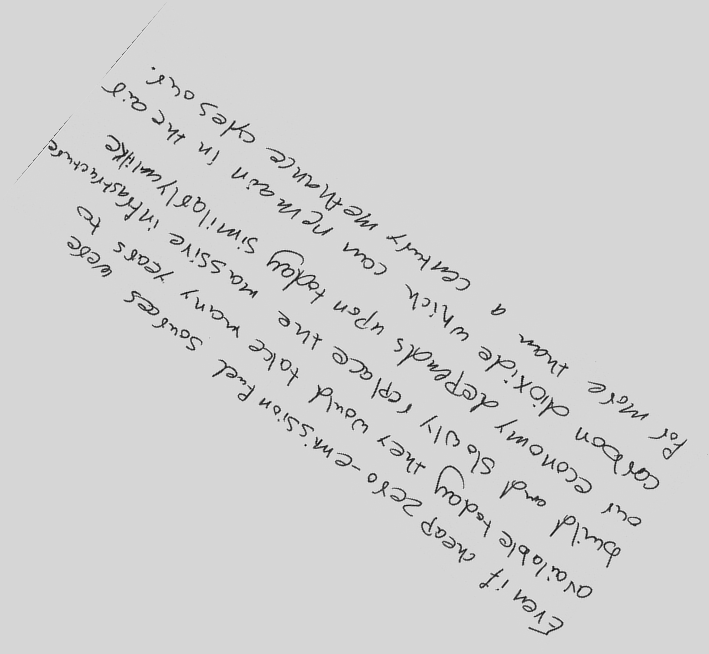 Even if cheap zero-emission fuel sources were
available today they would take many years to
build and slowly replace the massive infrastructure
our economy depends upon today Similarly unlike
carbon dioxide which can remain in the air
for more than a century methane cycles out.